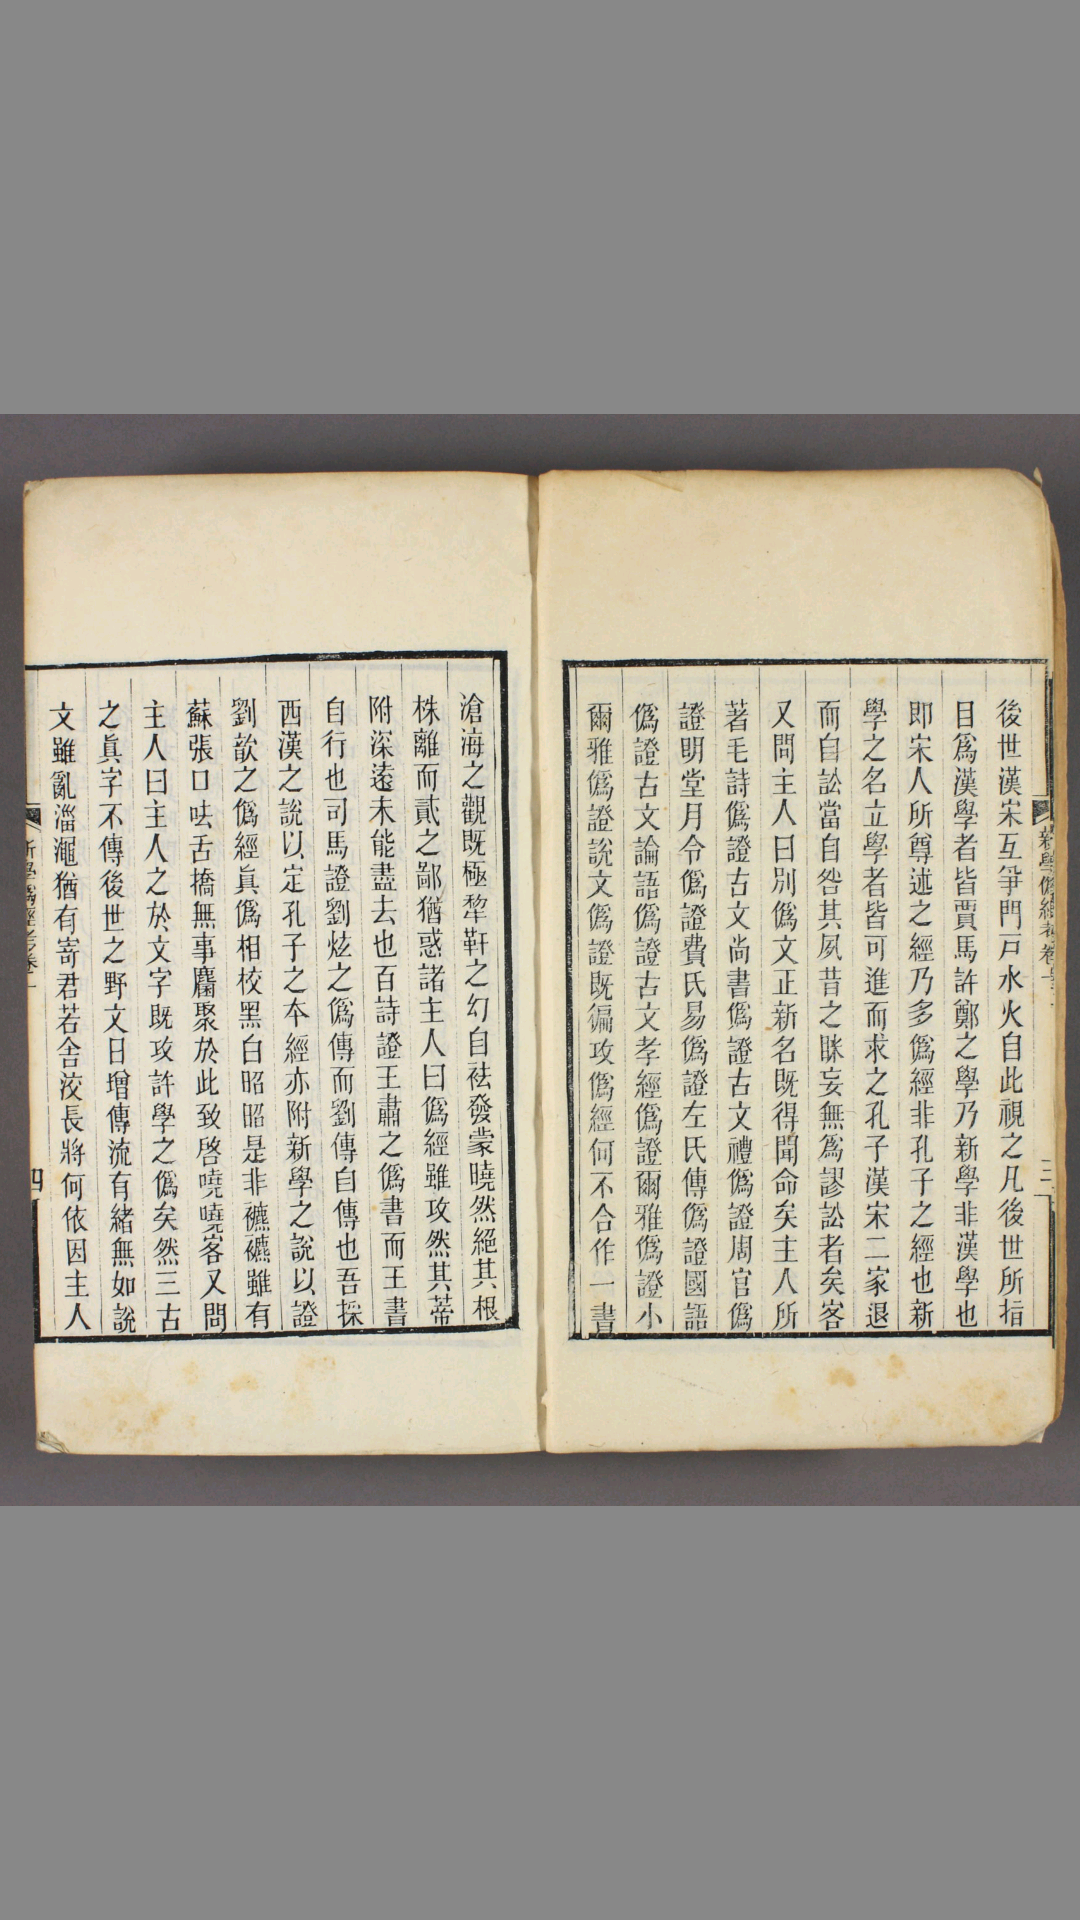 新學僞經考卷一
三
後世漢宋互爭門戸水火自此視之凡後世所指
目爲漢學者皆賈馬許鄭之學乃新學非漢學也
即宋人所尊述之經乃多僞經非孔子之經也新
學之名立學者皆可進而求之孔子漢宋二家退
而自訟當自咎其夙昔之眯妄無爲謬訟者矣客
又問主人曰別僞文正新名既得聞命矣主人所
著毛詩僞證古文尚書僞證古文禮僞證周官僞
證明堂月令僞證費氏易僞證左氏傳僞證國語
僞證古文論語僞證古文孝經僞證爾雅僞證小
爾雅僞證說文僞證既徧攻僞經何不合作一書
滄海之觀既極犂靬之幻自祛發蒙曉然絕其根
株離而貳之鄙猶惑諸主人曰僞經雖攻然其蒂
附深遠未能盡去也百詩證王肅之僞書而王書
自行也司馬證劉炫之僞傳而劉傳自傳也吾採
西漢之說以定孔子之本經亦附新學之說以證
劉歆之僞經眞僞相校黑白昭昭是非襹襹雖有
蘇張口呿舌撟無事麕聚於此致啓嘵嘵客又問
主人曰主人之於文字既攻許學之僞矣然三古
之眞字不傳後世之野文日增傳流有緒無如說
文雖亂淄澠猶有寄君若舍洨長將何依因主人
新學僞經考卷一
四